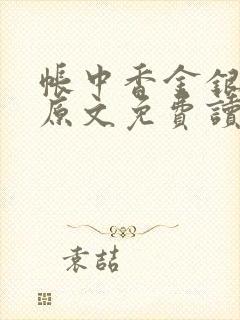 帳中香金銀
原文免費讀
袁喆